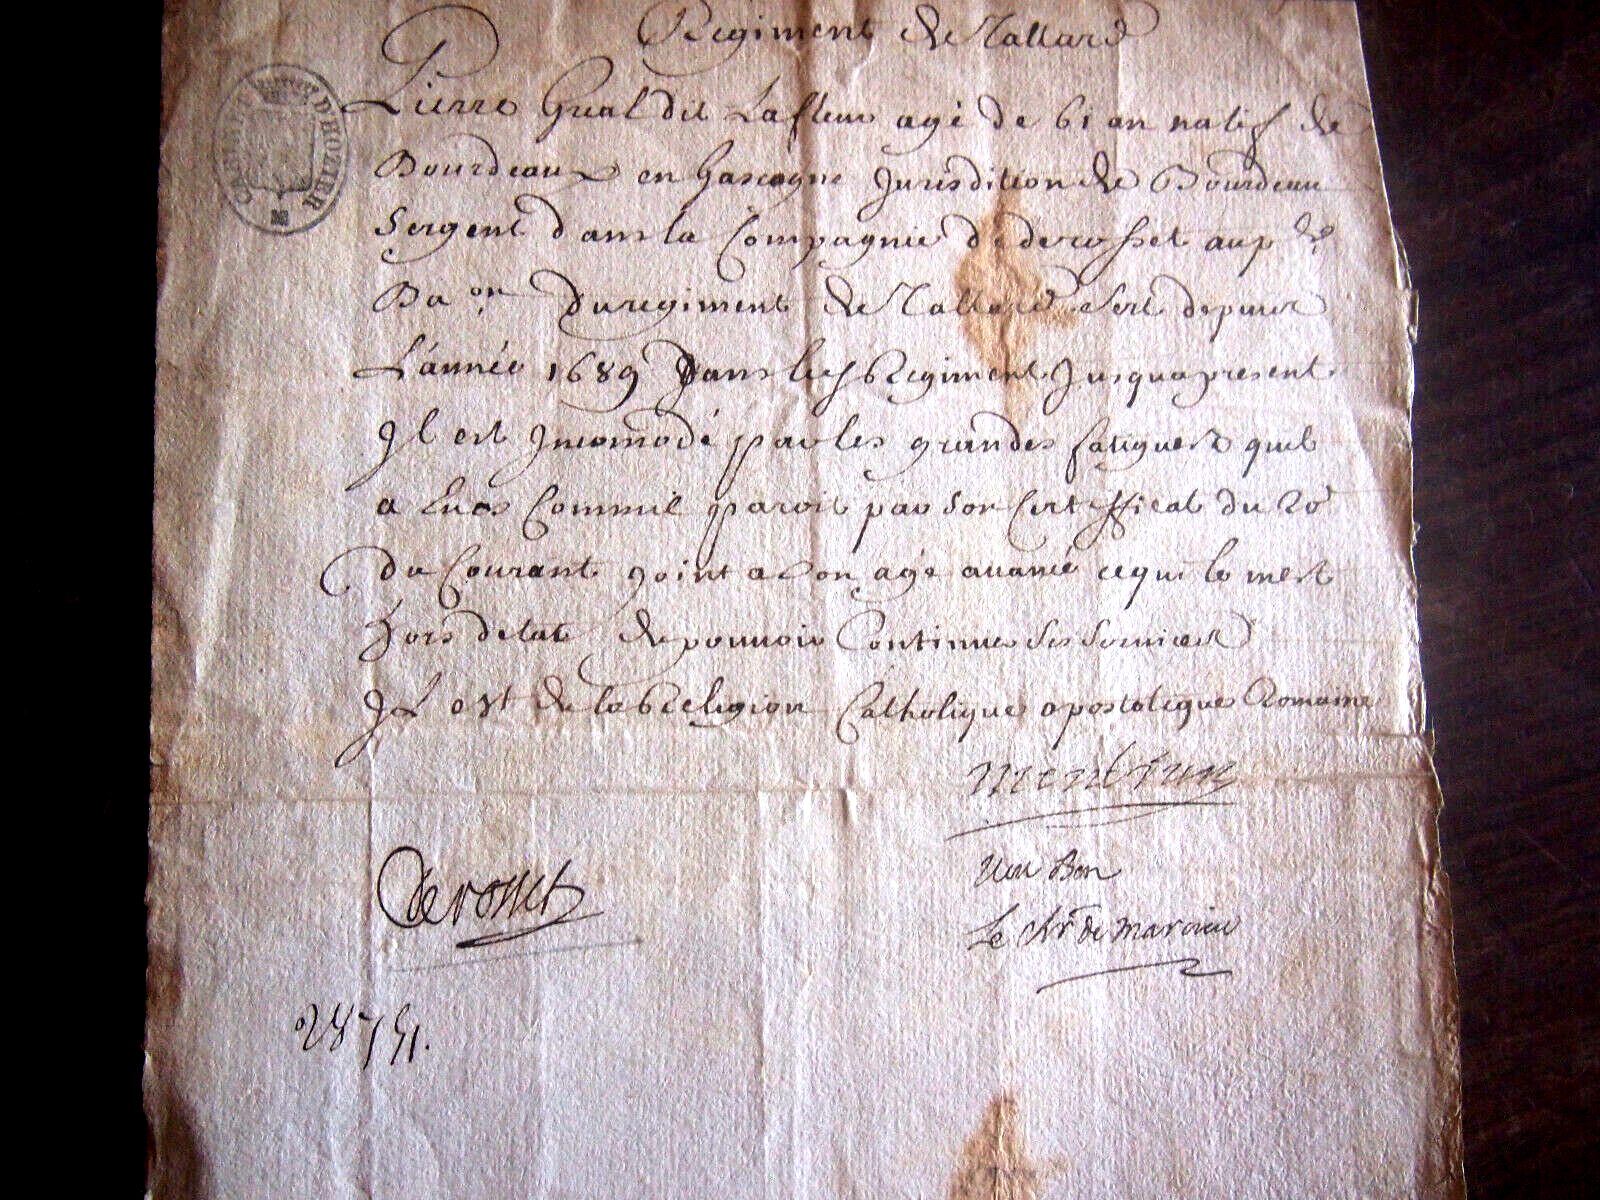 Regiment de Tallard
CABINET D'HOZIER
Pierre Gual dit Lafleur agé de 61 an natif de
Bourdeaux en Gascogne Jurisdition de Bourdeau
Sergent dans la Compagnie de derosset au p.er
Ba.on du regiment de Tallard sert depuis
L'année 1689 dans le Regiment Jusqua present
Il est Incomodé par les grandes fatigues quil
a Eues Comme il paroit par son Certifficat du 20
du Courant joint a son agé auancé ce qui le met
hors detat de pouuoir Continuer ses seruices
Il est de la Religion Catholique apostolique Romaine
derosset
Veu Bon
Le Chr de marcieu